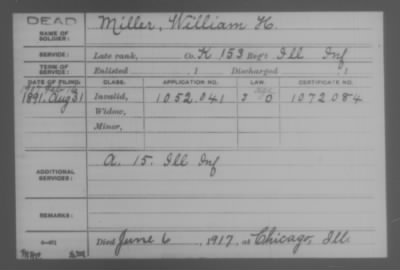 DEAD
NAME OF SOLDIER: Miller, William H.
SERVICE: Late rank, Co. K 153 Reg't Ill Inf
TERM OF SERVICE: Enlisted , 1 Discharged , 1
DATE OF FILING: CLASS. APPLICATION NO. LAW. CERTIFICATE NO.
1891. Aug 31 Invalid, 1052.041 1072.084
Widow,
Minor,
ADDITIONAL SERVICES: A. 15. Ill Inf
REMARKS:
Died June 6, 1917, at Chicago, Ill.